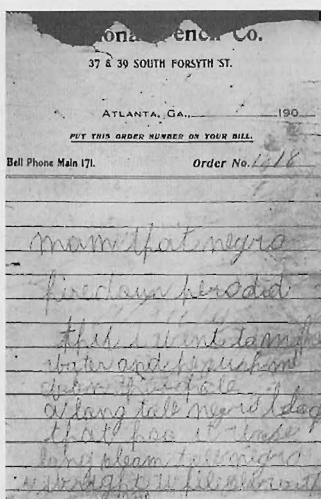 Pencil Co.
37 & 39 SOUTH FORSYTH ST.
ATLANTA, GA., 190
PUT THIS ORDER NUMBER ON YOUR BILL.
Bell Phone Main 171. Order No.
mam that negro
hire doun here did
this i went to make
water and he push me
doun that hole
a long tall negro black
that hoo it wase
long sleam tall negro
i wright while play with